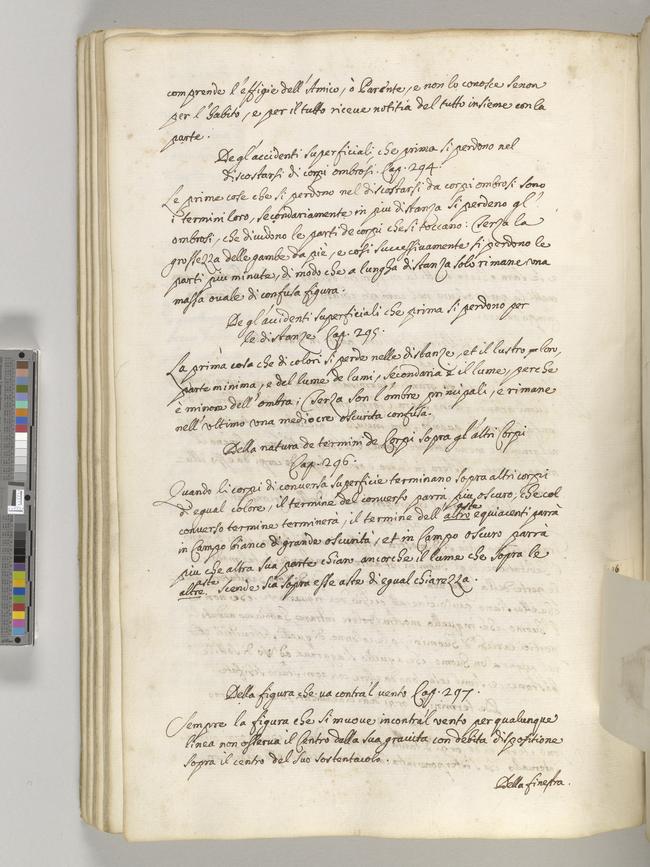 comprende l'effigie dell'Amico, ò Parente, e non lo conosce se non
per l'habito, e per il tutto riceve notitia del tutto insieme con la
parte.
Degl'accidenti superficiali che prima si perdono nel
discostarsi di corpi ombrosi. Cap. 294.
Le prime cose che si perdono nel discostarsi da corpi ombrosi sono
i termini loro, secondariamente in piu distanza si perdeno gl'
ombrosi, che dividono le parti de corpi che si toccano: Terza la
grossezza delle gambe da piè, e cosi successivamente si perdono le
parti piu minute, di modo che a lungha distanza solo rimane una
massa ovale di confusa figura.
Degl'accidenti superficiali che prima si perdono per
le distanze Cap. 295.
La prima cosa che di colori si perde nelle distanze, et il lustro loro,
parte minima, e del lume de lumi, secondaria è il lume, perche
è minore dell'ombra; Terza son l'ombre principali, e rimane
nell'ultimo una mediocre oscurita confusa.
Della natura de termini de Corpi sopra gl'altri Corpi
Cap. 296.
Quando li corpi di conversa superficie terminano sopra altri corpi
di egual colore, il termine del converso parrà piu oscuro, che col
aste
converso termine terminera, il termine dell' altro equiacenti parrà
in Campo bianco di grande oscurità, et in Campo oscuro parrà
piu che altra sua parte chiaro ancorche il lume che sopra le
aste
altre, scende sia sopra esse aste di egual chiarezza.
Della figura che va contra'l vento Cap. 297.
Sempre la figura che si muove incontra'l vento per qualunque
linea non osserva il Centro dalla sua gravita con debita dispositione
sopra il centro del suo sostentacolo.
Della finestra.